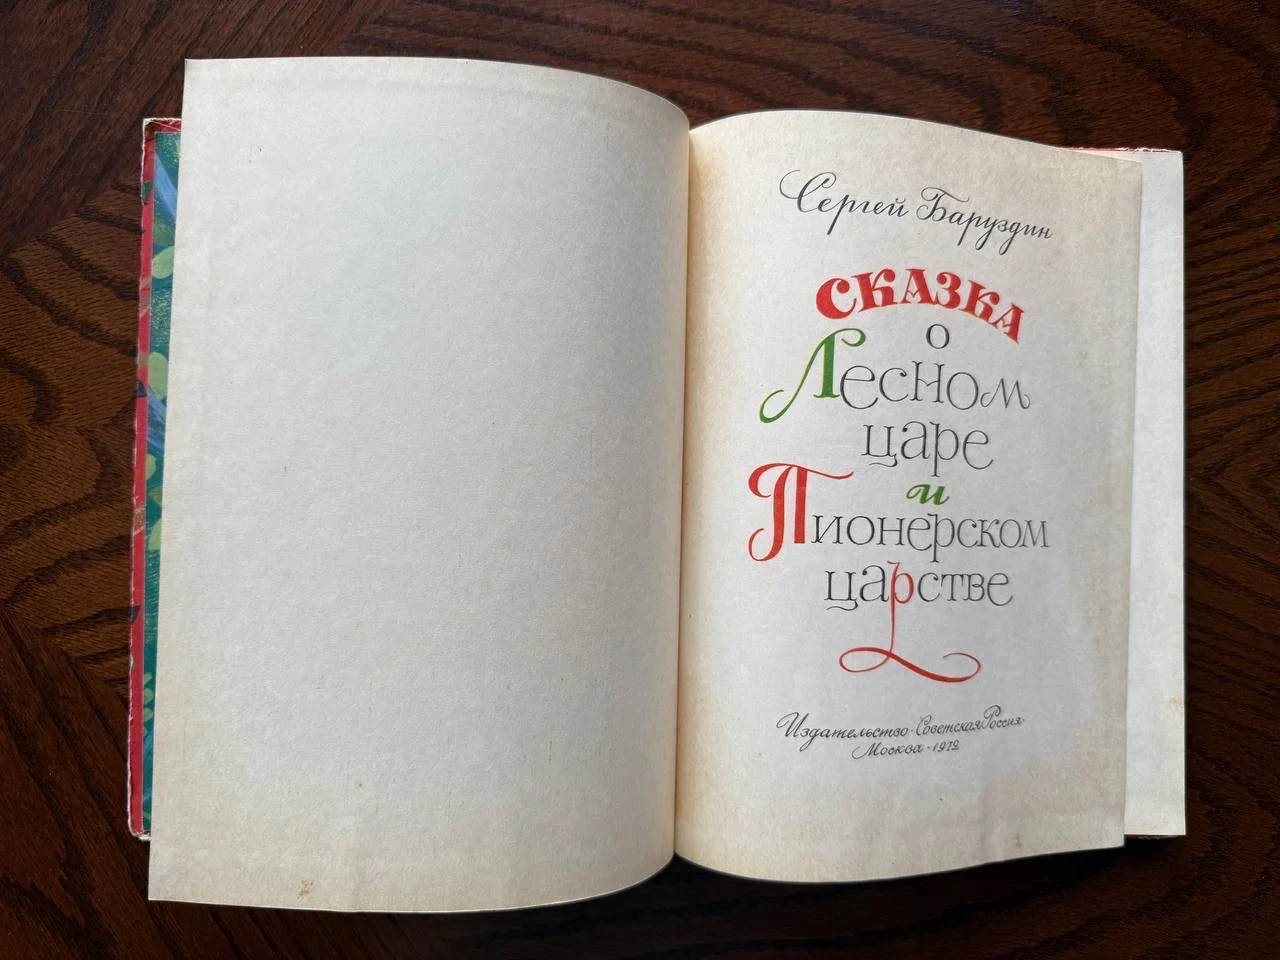 Сергей Баруздин
СКАЗКА
о
Лесном
царе
и
Пионерском
царстве
Издательство · Советская Россия ·
Москва · 1972